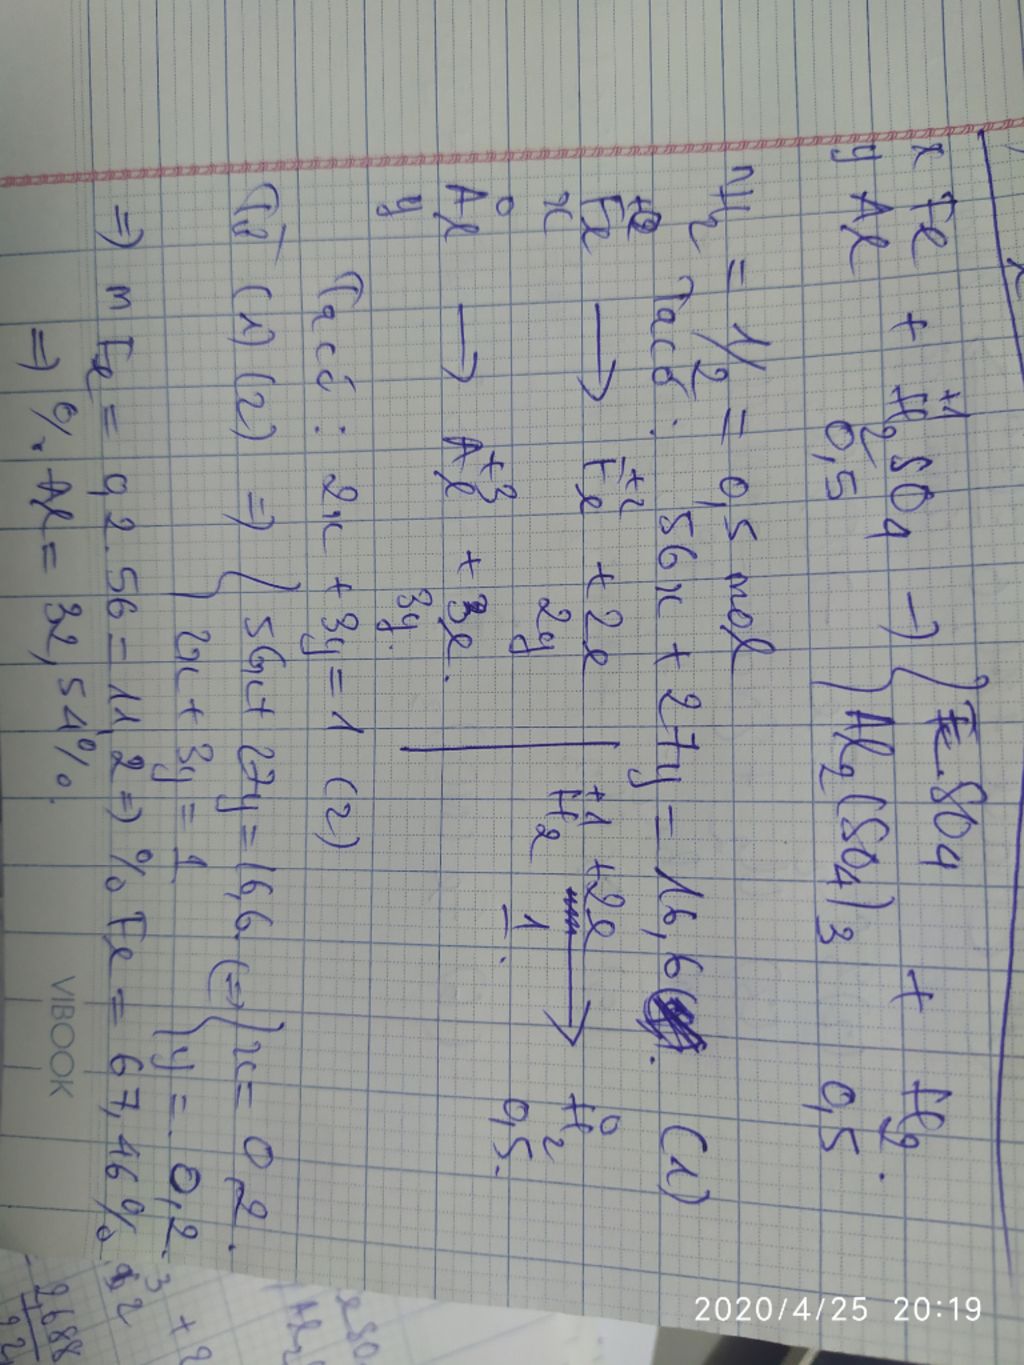 x Fe + H₂⁺¹SO₄ → { FeSO₄ + H₂.
y Al 0,5 { Al₂(SO₄)₃ 0,5
nH₂ = 1/2 = 0,5 mol
Ta có: 56x + 27y = 16,6 (1)
Fe → Fe⁺² + 2e | H₂⁺¹ + 2e → H₂⁰
x 2y | 1 0,5.
Al⁰ → Al⁺³ + 3e.
y 3y.
Ta có: 2x + 3y = 1 (2)
Từ (1) (2) ⇒ { 56x + 27y = 16,6 (=) { x = 0,2.
{ 2x + 3y = 1 { y = 0,2
⇒ mFe = 0,2.56 = 11,2 ⇒ % Fe = 67,46%
⇒ %Al = 32,54%.
VIBOOK
2688
2020/4/25 20:19